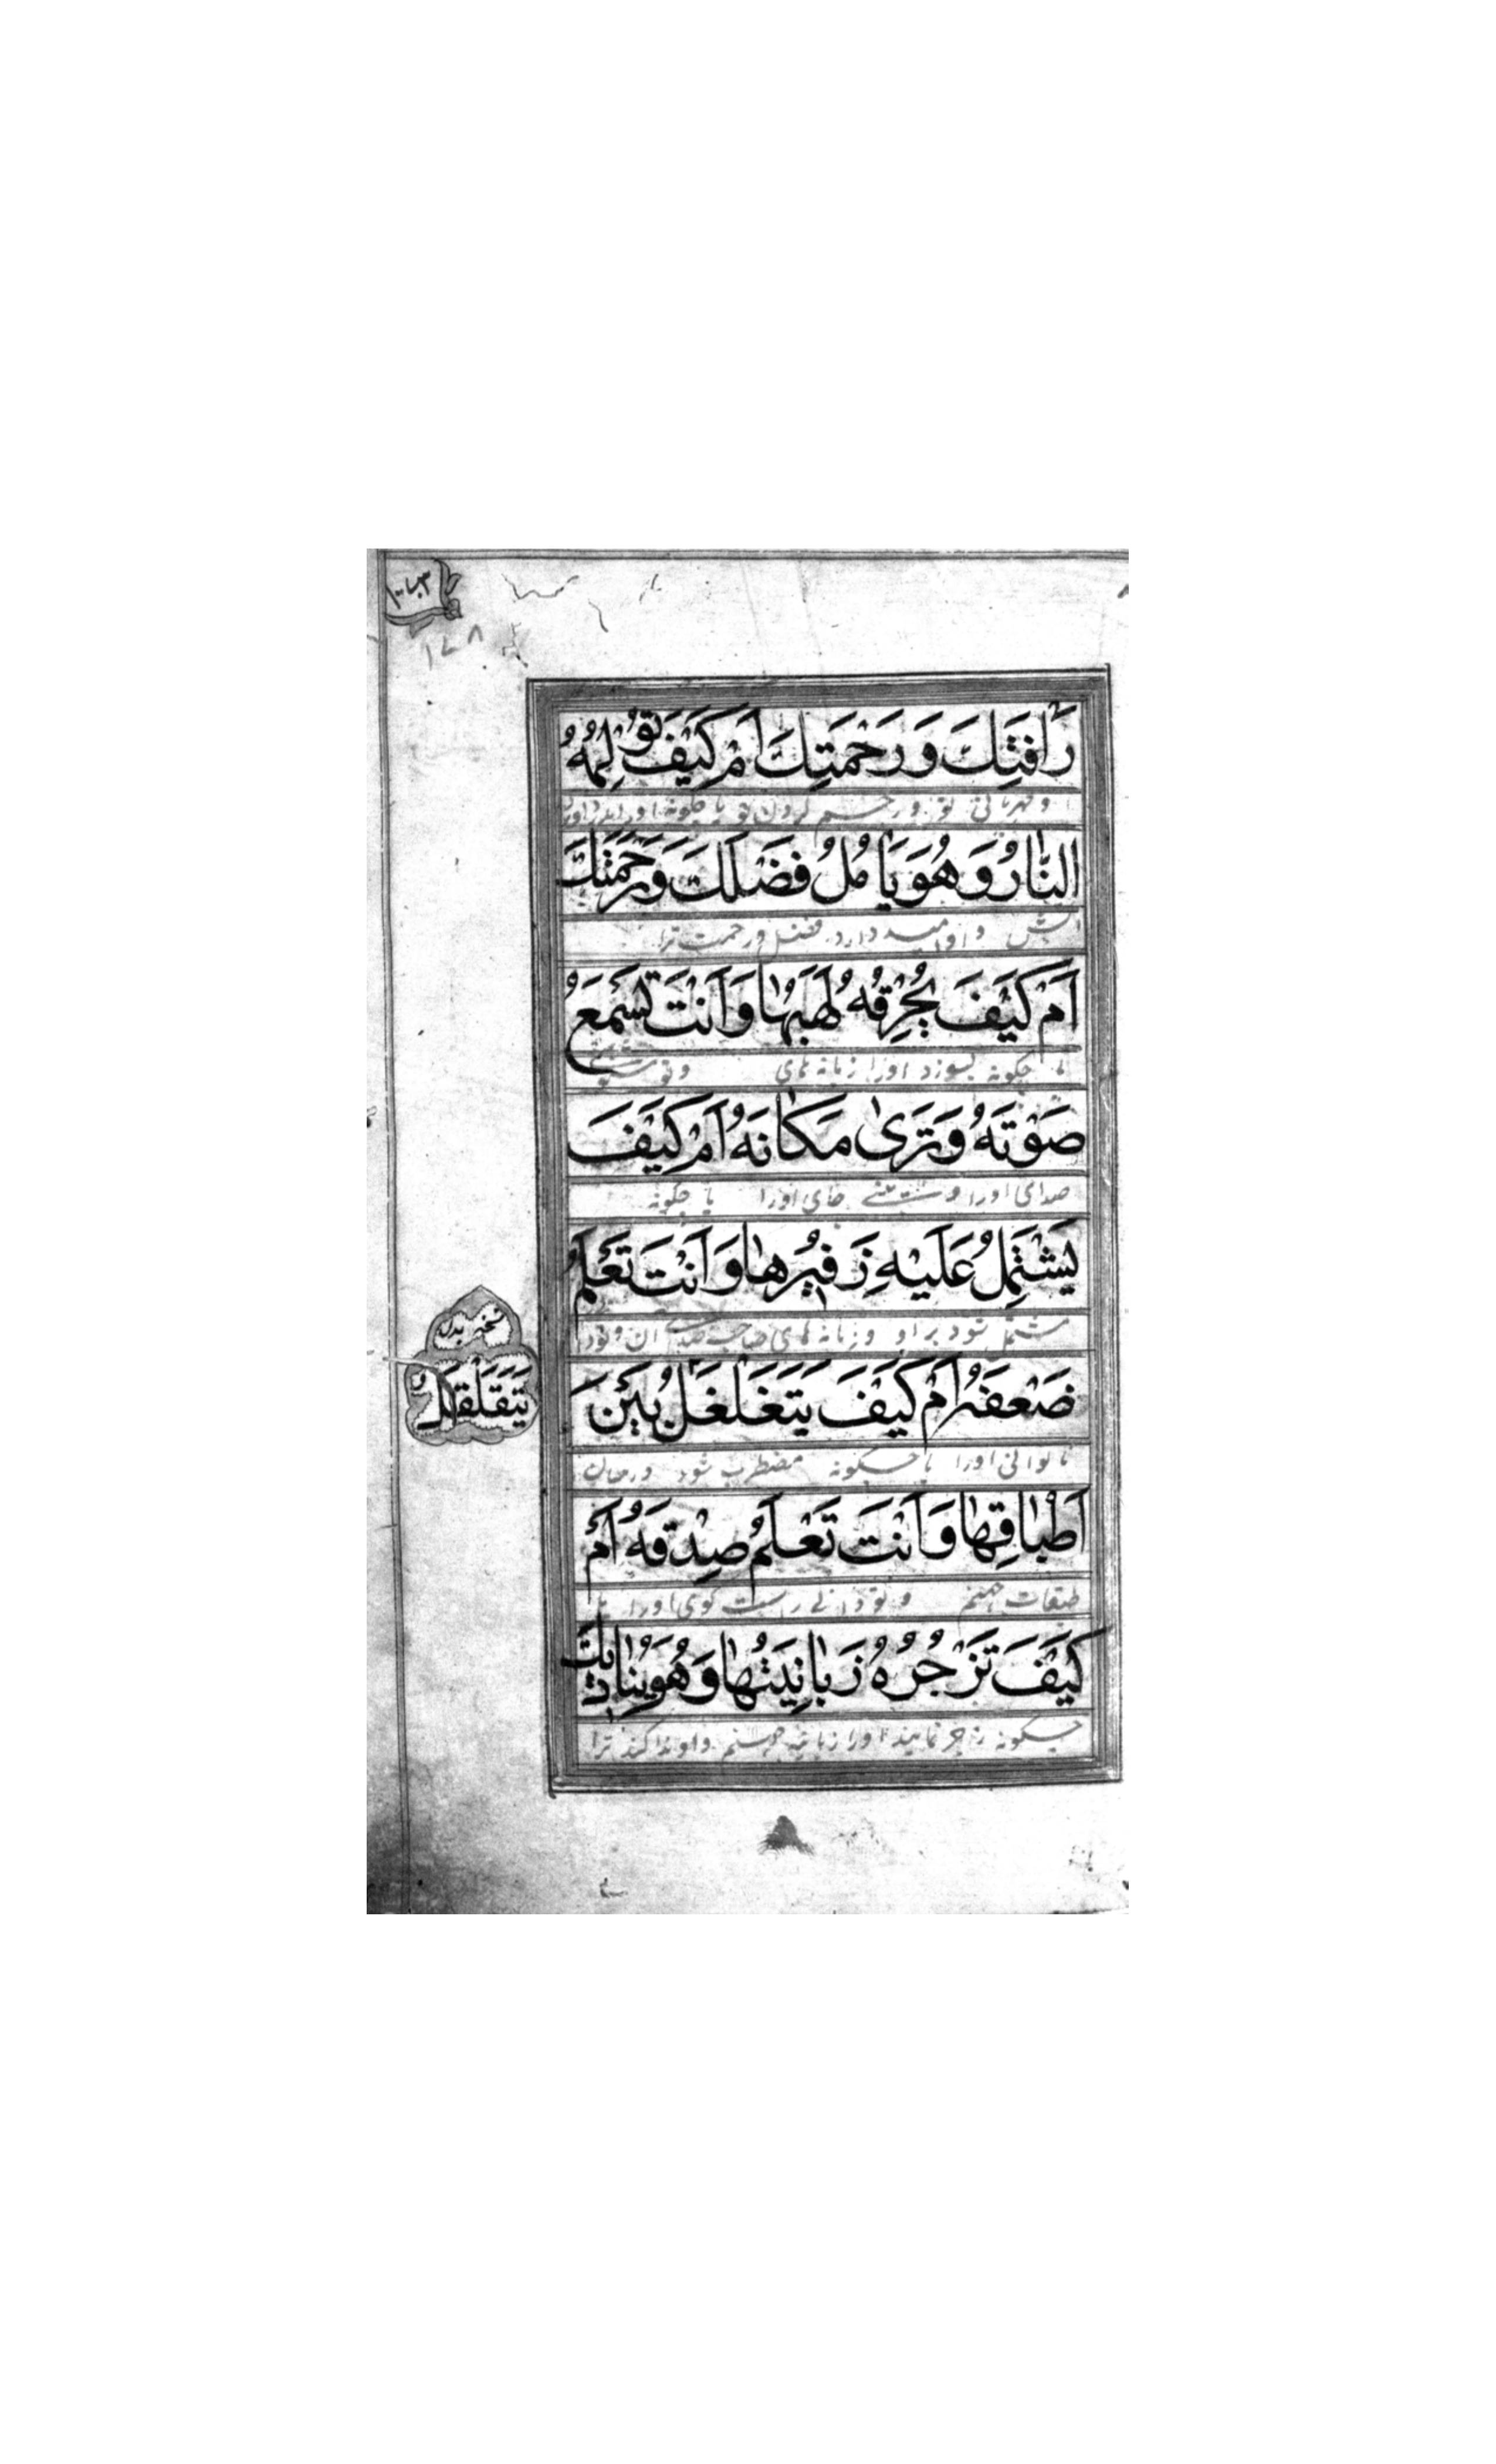 ١٧٨
رَأفَتِكَ وَرَحْمَتِكَ اَمْ كَيْفَ تُؤْلِمُهُ
و مهربانی تو و رحم کردن تو یا چگونه او
النّارُ وَهُوَ يَأْمُلُ فَضْلَكَ وَرَحْمَتَكَ
آتش و او امید دارد فضل و رحمت ترا
اَمْ كَيْفَ يُحْرِقُهُ لَهَبُها وَاَنْتَ تَسْمَعُ
یا چگونه بسوزد اورا زبانه های و تو
صَوْتَهُ وَتَرىٰ مَكانَهُ اَمْ كَيْفَ
صدای اورا و جای اورا یا چگونه
يَشْتَمِلُ عَلَيْهِ زَفيرُها وَاَنْتَ تَعْلَمُ
مشتمل شود بر او و زبانه های صاحب صدای ان و تو
ضَعْفَهُ اَمْ كَيْفَ يَتَغَلْغَلُ بَيْنَ
ناتوانی اورا یا چگونه مضطرب شود در میان
نسخه بدل
يَتَقَلْقَلُ
اَطْباقِها وَاَنْتَ تَعْلَمُ صِدْقَهُ اَمْ
طبقات جهنم و تو دانی راست گوی اورا یا
كَيْفَ تَزْجُرُهُ زَبانِيَتُها وَهُوَ يُناديكَ
چگونه زجر نمایند اورا زبانیه جهنم و او ندا کند ترا